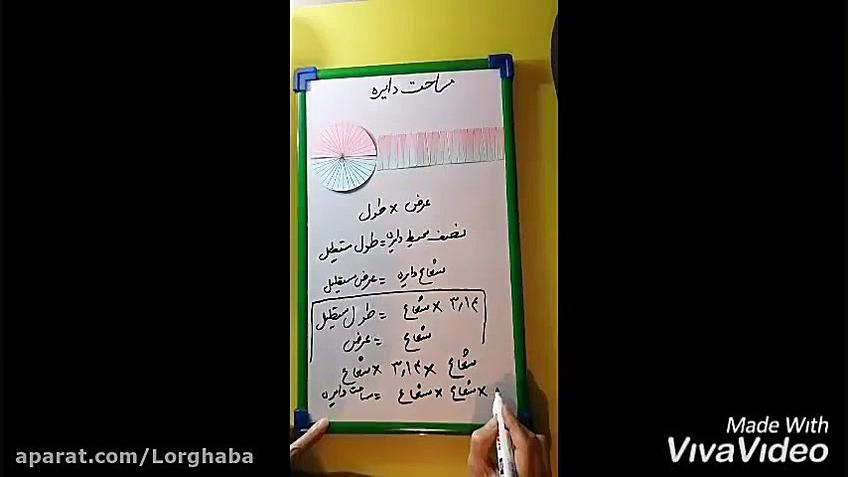 مساحت دایره
عرض × طول
نصف محیط دایره = طول مستطیل
شعاع دایره = عرض مستطیل
۳٫۱۴ × شعاع = طول مستطیل
شعاع = عرض
شعاع × ۳٫۱۴ × شعاع
× شعاع × شعاع = مساحت دایره
aparat.com/Lorghaba
Made With
VivaVideo